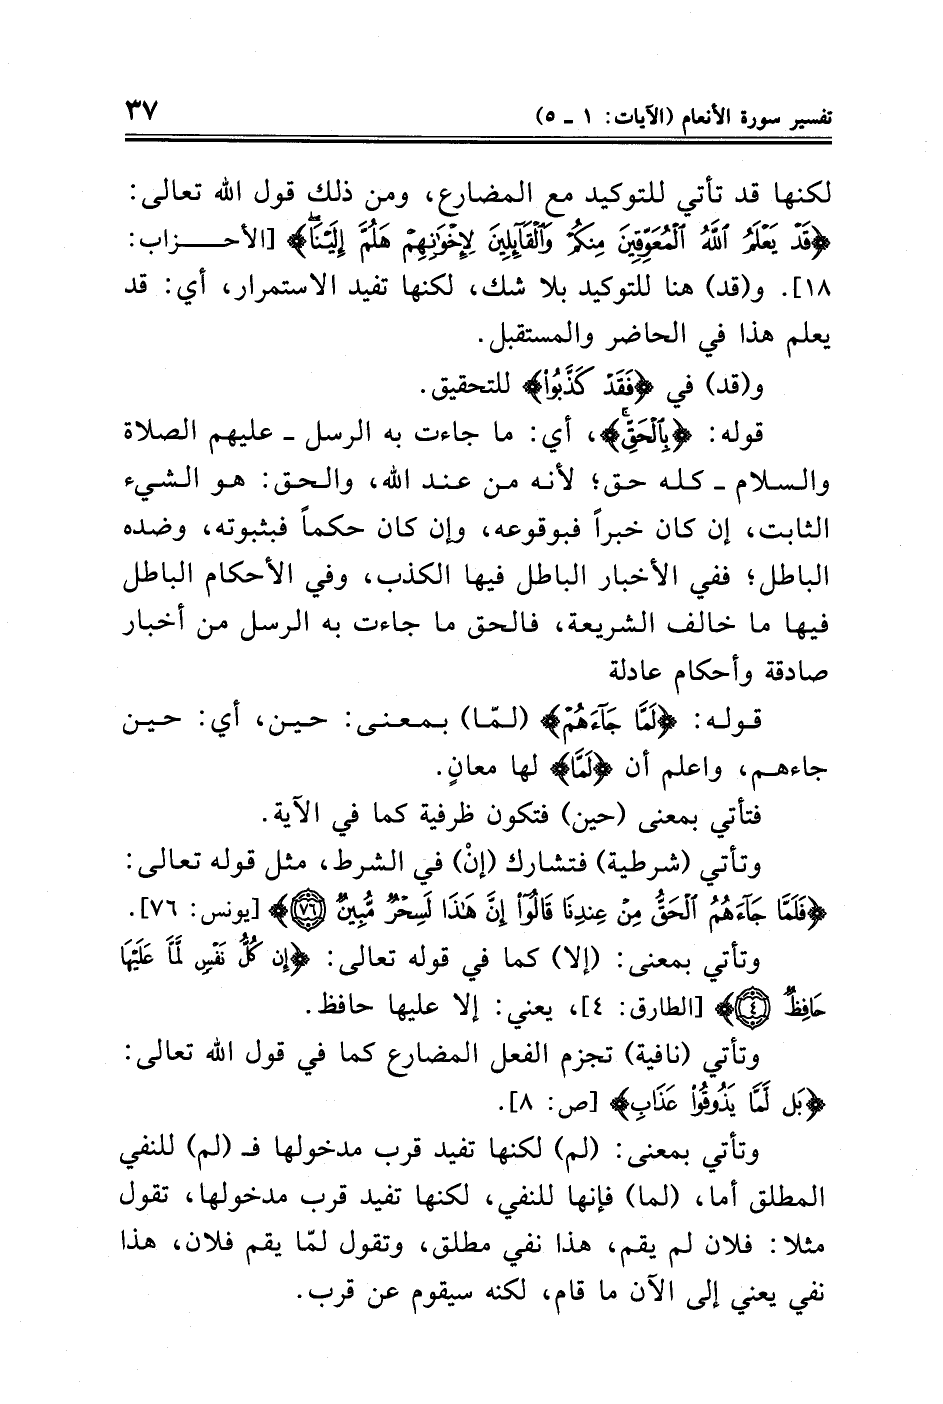 تفسير سورة الأنعام (الآيات: ١ ـ ٥) ٣٧
لكنها قد تأتي للتوكيد مع المضارع، ومن ذلك قول الله تعالى:
﴿قَدْ يَعْلَمُ ٱللَّهُ ٱلْمُعَوِّقِينَ مِنكُمْ وَٱلْقَآئِلِينَ لِإِخْوَٰنِهِمْ هَلُمَّ إِلَيْنَاۖ﴾ [الأحزاب:
١٨]. و(قد) هنا للتوكيد بلا شك، لكنها تفيد الاستمرار، أي: قد
يعلم هذا في الحاضر والمستقبل.
و(قد) في ﴿فَقَدْ كَذَّبُوا۟﴾ للتحقيق.
قوله: ﴿بِٱلْحَقِّ﴾، أي: ما جاءت به الرسل ـ عليهم الصلاة
والسلام ـ كله حق؛ لأنه من عند الله، والحق: هو الشيء
الثابت، إن كان خبراً فبوقوعه، وإن كان حكماً فبثبوته، وضده
الباطل؛ ففي الأخبار الباطل فيها الكذب، وفي الأحكام الباطل
فيها ما خالف الشريعة، فالحق ما جاءت به الرسل من أخبار
صادقة وأحكام عادلة
قوله: ﴿لَمَّا جَآءَهُمْ﴾ (لمّا) بمعنى: حين، أي: حين
جاءهم، واعلم أن ﴿لَمَّا﴾ لها معانٍ.
فتأتي بمعنى (حين) فتكون ظرفية كما في الآية.
وتأتي (شرطية) فتشارك (إنْ) في الشرط، مثل قوله تعالى:
﴿فَلَمَّا جَآءَهُمُ ٱلْحَقُّ مِنْ عِندِنَا قَالُوٓا۟ إِنَّ هَٰذَا لَسِحْرٌ مُّبِينٌ ٧٦﴾ [يونس: ٧٦].
وتأتي بمعنى: (إلا) كما في قوله تعالى: ﴿إِن كُلُّ نَفْسٍ لَّمَّا عَلَيْهَا
حَافِظٌ ٤﴾ [الطارق: ٤]، يعني: إلا عليها حافظ.
وتأتي (نافية) تجزم الفعل المضارع كما في قول الله تعالى:
﴿بَل لَّمَّا يَذُوقُوا۟ عَذَابِ﴾ [ص: ٨].
وتأتي بمعنى: (لم) لكنها تفيد قرب مدخولها فـ (لم) للنفي
المطلق أما، (لما) فإنها للنفي، لكنها تفيد قرب مدخولها، تقول
مثلا: فلان لم يقم، هذا نفي مطلق، وتقول لمّا يقم فلان، هذا
نفي يعني إلى الآن ما قام، لكنه سيقوم عن قرب.